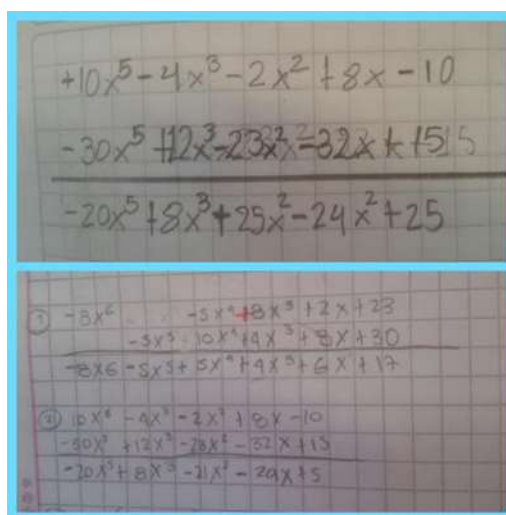 +10x⁵-4x³-2x²+8x-10
-30x⁵+12x³-23x²-32x+15
-20x⁵+8x³+25x²-24x²+25
① -8x⁶ -5x⁴+8x³+2x+23
-5x⁵ 10x⁴+4x³+8x+30
-8x6-5x⁵+5x⁴+4x³+6x+17
② 10x⁵-4x³-2x²+8x-10
-30x⁵+12x³-23x²-32x+15
-20x⁵+8x³-21x²-24x+5